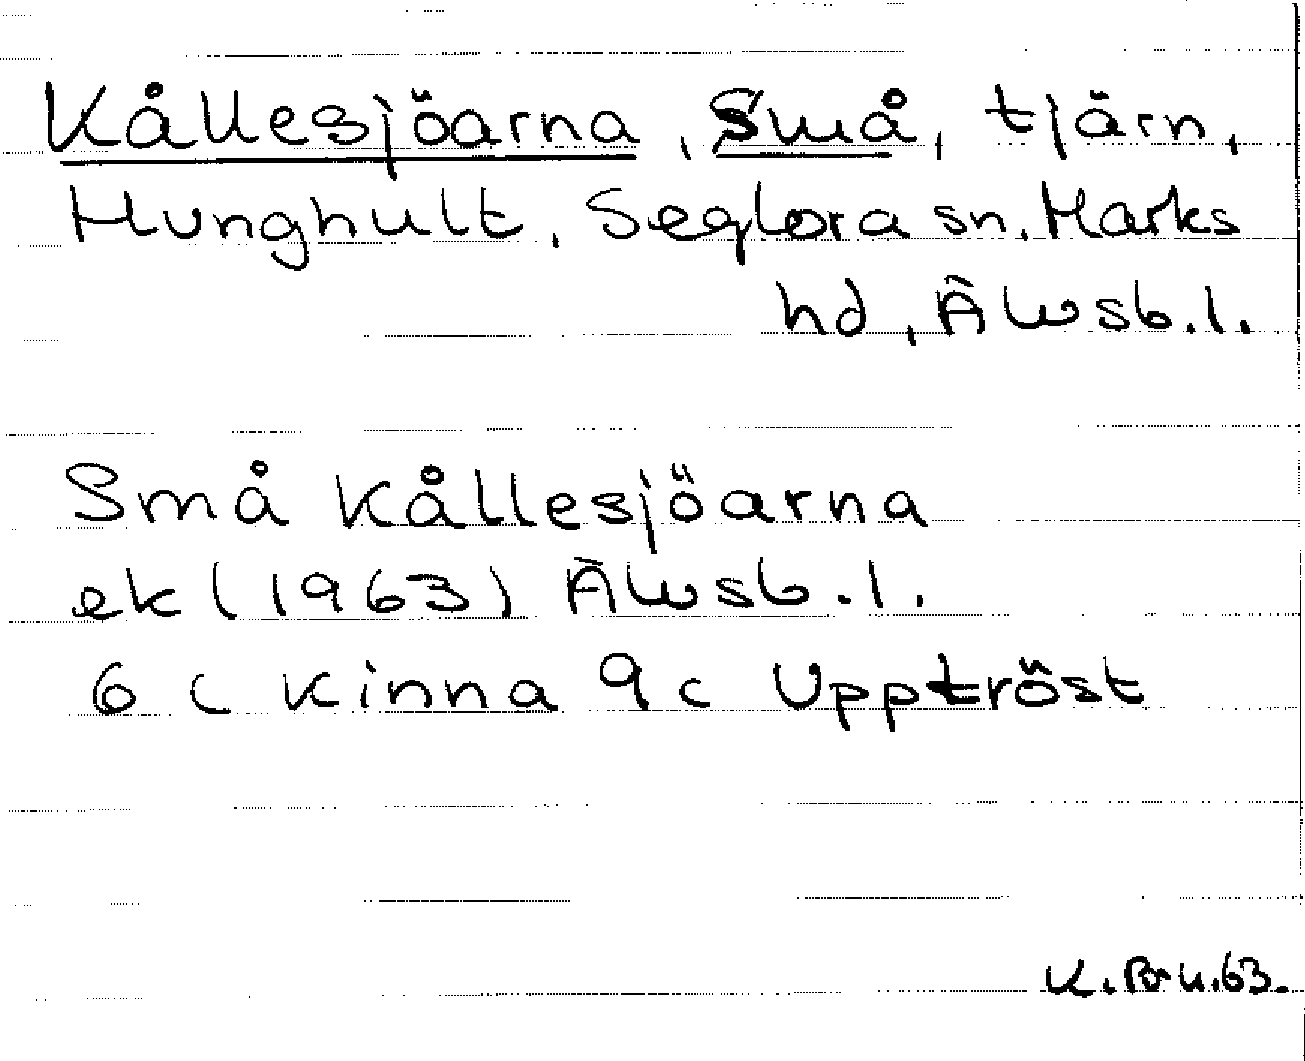 Kållesjöarna, Små, tjärn,
Hunghult, Seglora sn, Marks
hd, Älvsb.l.
Små Kållesjöarna
ek (1963) Älvsb.l.
6 c Kinna 9 c Upptröst
63.